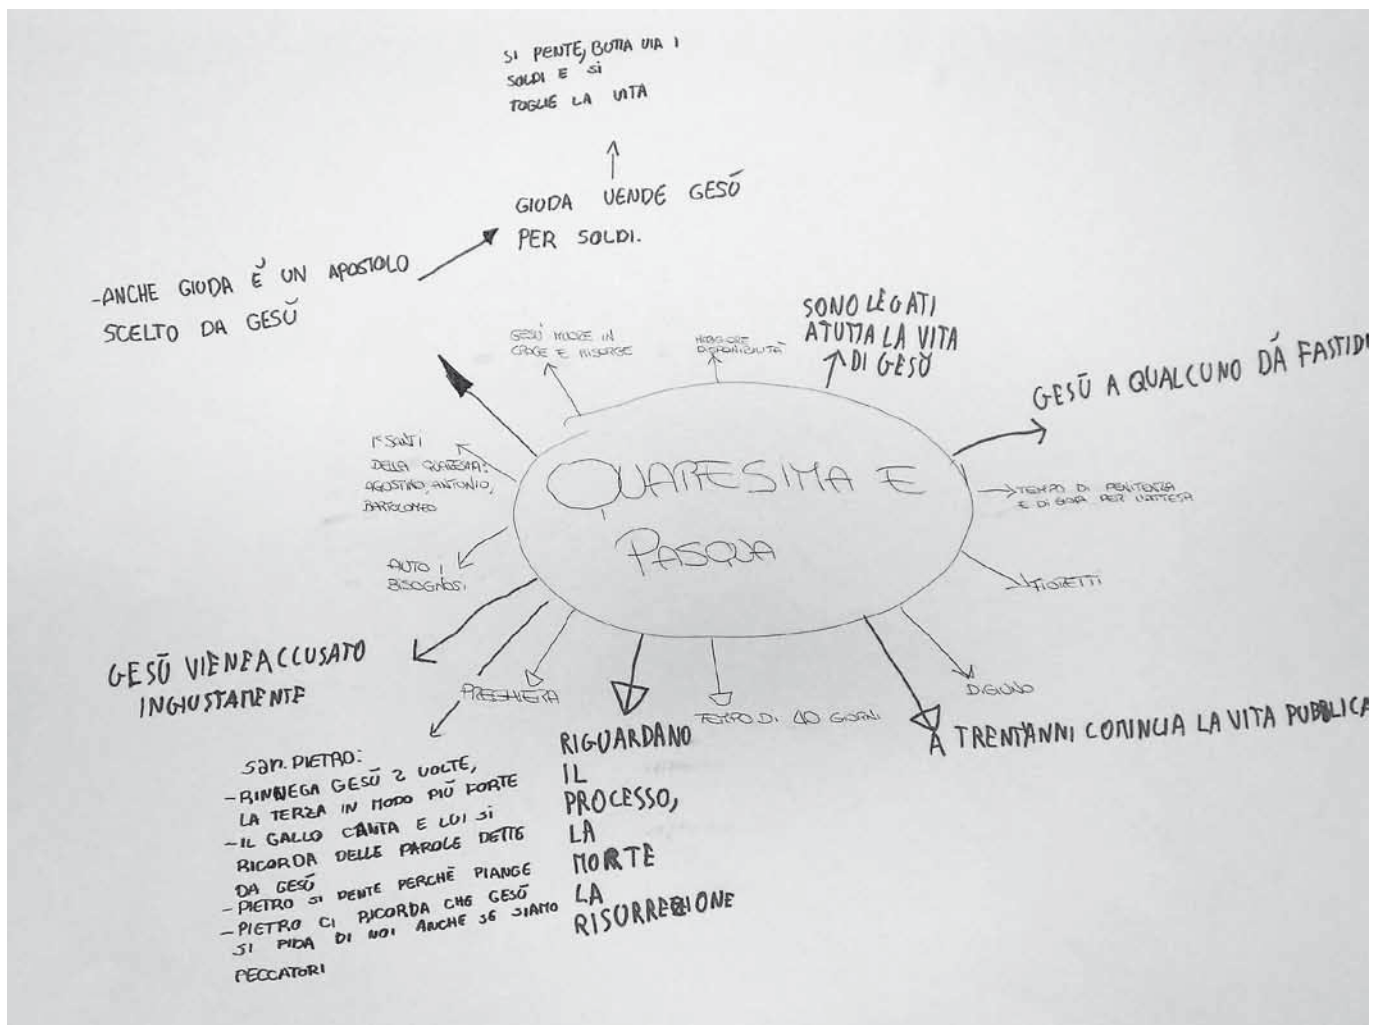 SI PENTE, BUTTA VIA I
SOLDI E SI
TOGLIE LA VITA
GIUDA VENDE GESÙ
PER SOLDI.
-ANCHE GIUDA È UN APOSTOLO
SCELTO DA GESÙ
GESÙ MUORE IN
CROCE E RISORGE
MAGGIORE
DISPONIBILITÀ
SONO LEGATI
A TUTTA LA VITA
DI GESÙ
GESÙ A QUALCUNO DÁ FASTIDI
I SANTI
DELLA QUARESIMA:
AGOSTINO, ANTONIO,
BARTOLOMEO
QUARESIMA E
PASQUA
TEMPO DI PENITENZA
E DI GIOIA PER L'ATTESA
AIUTO I
BISOGNOSI
FIORETTI
GESÙ VIENE ACCUSATO
INGIUSTAMENTE
PREGHIERA
DIGIUNO
TEMPO DI 40 GIORNI
A TRENT'ANNI COMINCIA LA VITA PUBBLICA
San. PIETRO:
-RINNEGA GESÙ 2 VOLTE,
LA TERZA IN MODO PIÙ FORTE
-IL GALLO CANTA E LUI SI
RICORDA DELLE PAROLE DETTE
DA GESÙ
-PIETRO SI PENTE PERCHÈ PIANGE
-PIETRO CI RICORDA CHE GESÙ
SI FIDA DI NOI ANCHE SE SIAMO
PECCATORI
RIGUARDANO
IL
PROCESSO,
LA
MORTE
LA
RISURREZIONE